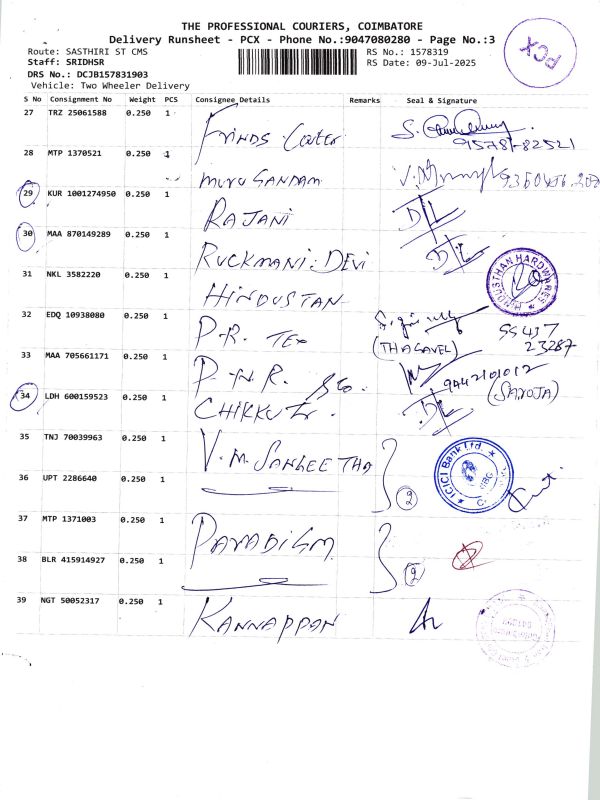 THE PROFESSIONAL COURIERS, COIMBATORE
Delivery Runsheet - PCX - Phone No.:9047080280 - Page No.:3
Route: SASTHIRI ST CMS
RS No.: 1578319
Staff: SRIDHSR
RS Date: 09-Jul-2025
DRS No.: DCJB157831903
Vehicle: Two Wheeler Delivery
PCX
S No Consignment No Weight PCS Consignee Details Remarks Seal & Signature
27 TRZ 25061588 0.250 1
95781-82521
28 MTP 1370521 0.250 1
MURUGANDAM
29 KUR 1001274950 0.250 1
RAJANI D/L
30 MAA 870149289 0.250 1
RUCKMANI.DEVI D/L
31 NKL 3582220 0.250 1
HINDUSTAN HINDUSTHAN HARDWARES
32 EDQ 10938080 0.250 1
P.R. TEX
(THAGAVEL) 23287
33 MAA 705661171 0.250 1
P.N.R. &co. 9442101012
(SAROJA)
34 LDH 600159523 0.250 1
D/L
35 TNJ 70039963 0.250 1
V.M.SANGEETHA
ICICI Bank Ltd.
36 UPT 2286640 0.250 1
2
37 MTP 1371003 0.250 1
PARADIGM
38 BLR 415914927 0.250 1
2
39 NGT 50052317 0.250 1
KANNAPPAN